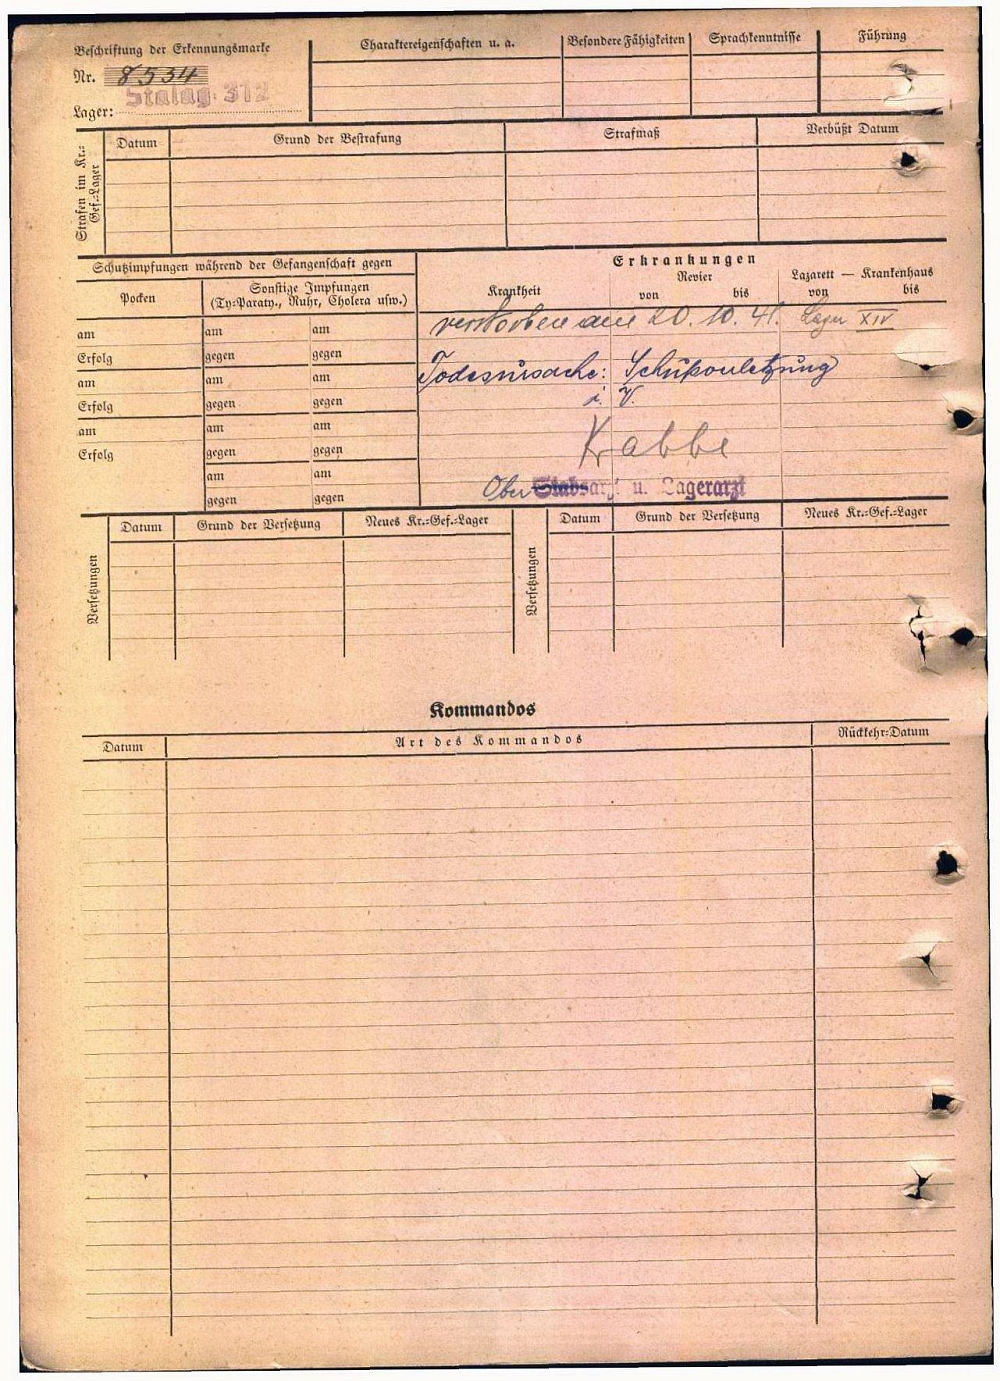 Beschriftung der Erkennungsmarke
Nr. 8534
Lager: Stalag 312
Charaktereigenschaften u. a.
Besondere Fähigkeiten
Sprachkenntnisse
Führung
Strafen im Kr.=Gef.=Lager
Datum
Grund der Bestrafung
Strafmaß
Verbüßt Datum
Schutzimpfungen während der Gefangenschaft gegen
Erkrankungen
Pocken
Sonstige Impfungen
(Ty=Paraty., Ruhr, Cholera usw.)
Krankheit
Revier
von bis
Lazarett — Krankenhaus
von bis
am am am
verstorben am 20. 10. 41. Lager XIV
Erfolg gegen gegen
am am am
Todesursache: Schußverletzung
Erfolg gegen gegen
i. V.
am am am
Krabbe
Erfolg gegen gegen
am am
Ober Stabsarzt u. Lagerarzt
gegen gegen
Versetzungen
Datum Grund der Versetzung Neues Kr.=Gef.=Lager
Versetzungen
Datum Grund der Versetzung Neues Kr.=Gef.=Lager
Kommandos
Datum Art des Kommandos Rückkehr=Datum